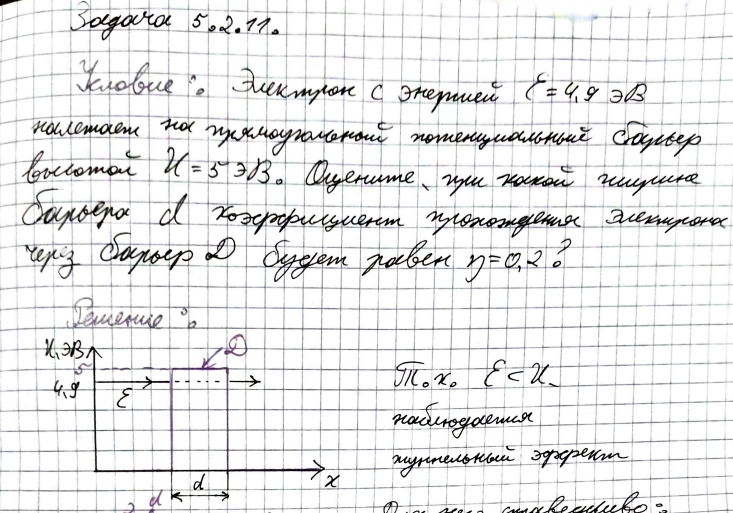 Задача 5.2.11.
Условие: Электрон с энергией Ɛ=4,9 эВ
налетает на прямоугольный потенциальный барьер
высотой U=5 эВ. Оцените, при какой ширине
барьера d коэффициент прохождения электрона
через барьер D будет равен η=0,2?
Решение:
U, эВ
D
5
4,9
Ɛ
d
x
Т.к. Ɛ<U-
наблюдается
туннельный эффект
d
справедливо: